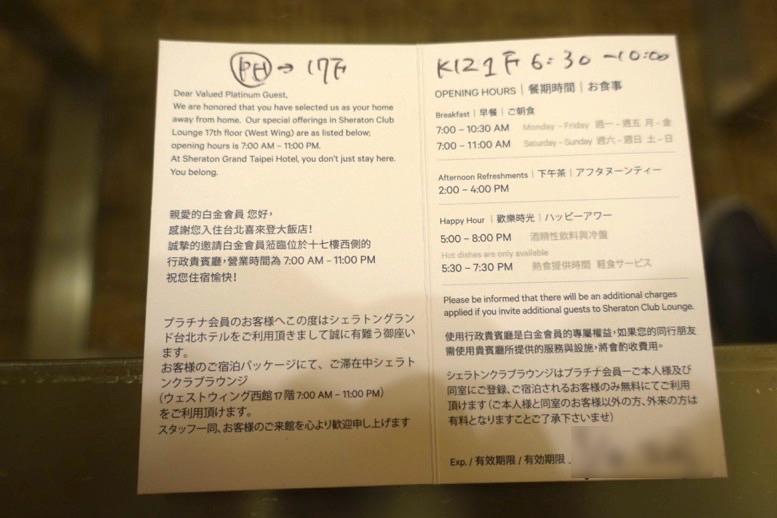 PH → 17F
Dear Valued Platinum Guest,
We are honored that you have selected us as your home
away from home. Our special offerings in Sheraton Club
Lounge 17th floor (West Wing) are as listed below;
opening hours is 7:00 AM – 11:00 PM.
At Sheraton Grand Taipei Hotel, you don't just stay here.
You belong.
親愛的白金會員 您好,
感謝您入住台北喜來登大飯店!
誠摯的邀請白金會員蒞臨位於十七樓西側的
行政貴賓廳,營業時間為 7:00 AM – 11:00 PM
祝您住宿愉快!
プラチナ会員のお客様へこの度はシェラトングラン
ド台北ホテルをご利用頂きまして誠に有難う御座い
ます。
お客様のご宿泊パッケージにて、ご滞在中シェラト
ンクラブラウンジ
(ウェストウィング西館 17 階 7:00 AM – 11:00 PM)
をご利用頂けます。
スタッフ一同、お客様のご来館を心より歓迎申し上げます
K12 1F 6:30 –10:00
OPENING HOURS | 餐期時間 | お食事
Breakfast | 早餐 | ご朝食
7:00 – 10:30 AM Monday – Friday 週一 – 週五 月 – 金
7:00 – 11:00 AM Saturday – Sunday 週六 – 週日 土 – 日
Afternoon Refreshments | 下午茶 | アフタヌーンティー
2:00 – 4:00 PM
Happy Hour | 歡樂時光 | ハッピーアワー
5:00 – 8:00 PM 酒精性飲料與冷盤
Hot dishes are only available
5:30 – 7:30 PM 熱食提供時間 軽食サービス
Please be informed that there will be an additional charges
applied if you invite additional guests to Sheraton Club Lounge.
使用行政貴賓廳是白金會員的專屬權益,如果您的同行朋友
需使用貴賓廳所提供的服務與設施,將會酌收費用。
シェラトンクラブラウンジはプラチナ会員一ご本人様及び
同室にご登録、ご宿泊されるお客様のみ無料にてご利用
頂けます(ご本人様と同室のお客様以外の方、外来の方は
有料となりますことご了承下さいませ)
Exp. / 有效期限 / 有効期限